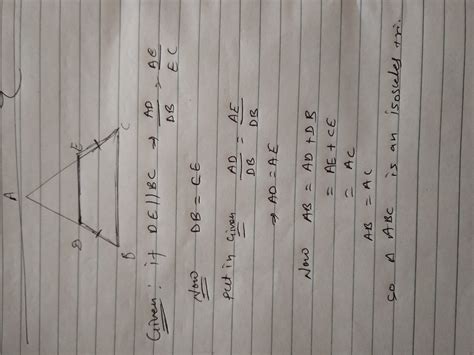 A
D E
B C
Given: if DE||BC → AD/DB = AE/EC
Now DB = CE
put in Given
AD/DB = AE/DB
→ AD = AE
Now AB = AD + DB
= AE + CE
= AC
AB = AC
so Δ ABC is an isosceles tri.